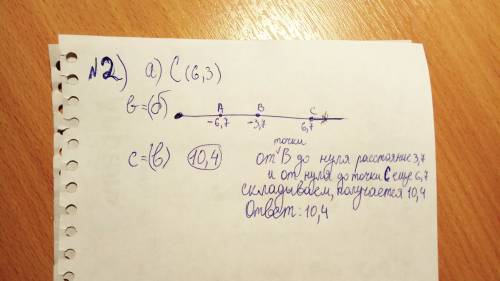 №2) а) C (6,3)
в=(б)
A B C
-6,7 -3,7 6,7
точки
c=(в) 10,4 от B до нуля расстояние 3,7
и от нуля до точки C еще 6,7
складываем, получается 10,4
Ответ: 10,4